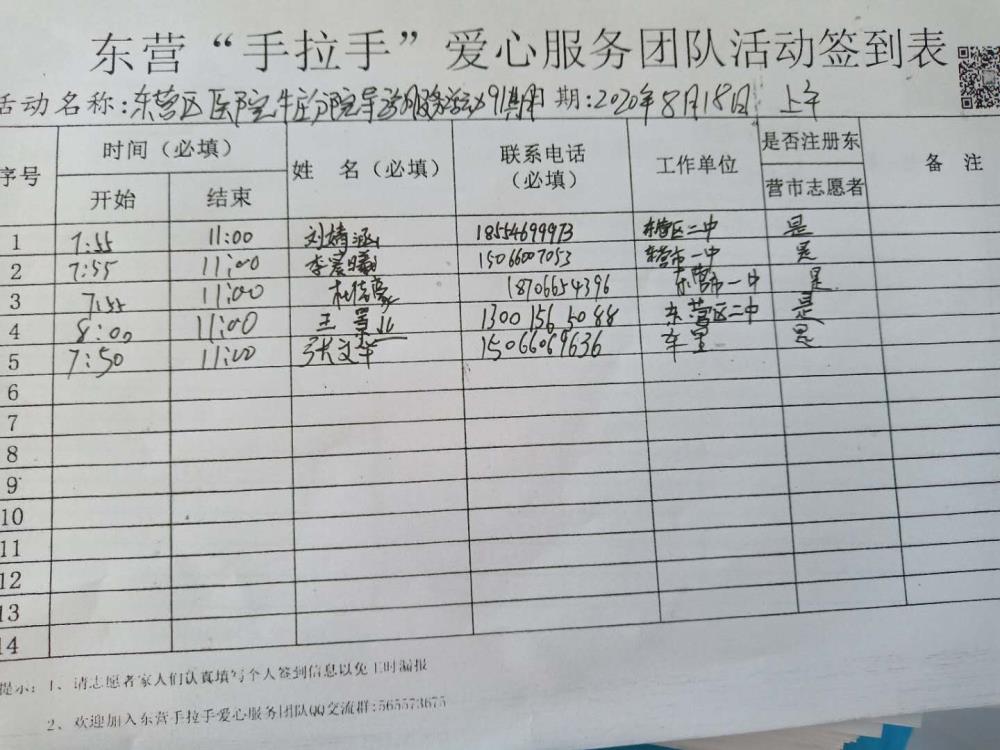 东营“手拉手”爱心服务团队活动签到表
活动名称:东营区医院牛庄分院导诊服务活动91期 日期:2020年8月18日 上午
序号 时间(必填) 姓 名(必填) 联系电话(必填) 工作单位 是否注册东营市志愿者 备 注
开始 结束
1 7:55 11:00 刘婧涵 18554699973 东营区二中 是
2 7:55 11:00 李宸曦 15066007053 东营市一中 是
3 7:55 11:00 杜信豪 18706654396 东营市一中 是
4 8:00 11:00 王 1300 156 5088 东营区二中 是
5 7:50 11:00 张文华 15066069636 是
6
7
8
9
10
11
12
13
14
提示: 1、请志愿者家人们认真填写个人签到信息以免工时漏报
2、欢迎加入东营手拉手爱心服务团队QQ交流群:565573675